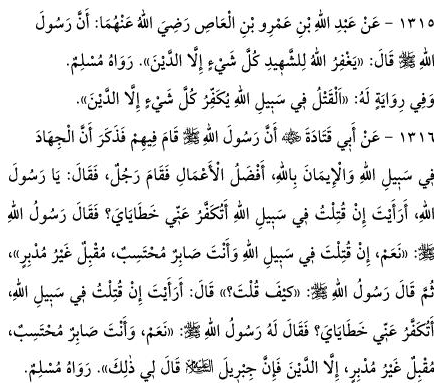 ١٣١٥ - عَنْ عَبْدِ اللهِ بْنِ عَمْرِو بْنِ الْعَاصِ رَضِيَ اللهُ عَنْهُمَا: أَنَّ رَسُولَ
اللهِ ﷺ قَالَ: «يَغْفِرُ اللهُ لِلشَّهِيدِ كُلَّ شَيْءٍ إِلَّا الدَّيْنَ». رَوَاهُ مُسْلِمٌ.
وَفِي رِوَايَةٍ لَهُ: «اَلْقَتْلُ فِي سَبِيلِ اللهِ يُكَفِّرُ كُلَّ شَيْءٍ إِلَّا الدَّيْنَ».
١٣١٦ - عَنْ أَبِي قَتَادَةَ ﵁ أَنَّ رَسُولَ اللهِ ﷺ قَامَ فِيهِمْ فَذَكَرَ أَنَّ الْجِهَادَ
فِي سَبِيلِ اللهِ وَالْإِيمَانَ بِاللهِ، أَفْضَلُ الْأَعْمَالِ فَقَامَ رَجُلٌ، فَقَالَ: يَا رَسُولَ
اللهِ، أَرَأَيْتَ إِنْ قُتِلْتُ فِي سَبِيلِ اللهِ أَتُكَفَّرُ عَنِّي خَطَايَايَ؟ فَقَالَ رَسُولُ اللهِ
ﷺ: «نَعَمْ، إِنْ قُتِلْتَ فِي سَبِيلِ اللهِ وَأَنْتَ صَابِرٌ مُحْتَسِبٌ، مُقْبِلٌ غَيْرُ مُدْبِرٍ»،
ثُمَّ قَالَ رَسُولُ اللهِ ﷺ: «كَيْفَ قُلْتَ؟» قَالَ: أَرَأَيْتَ إِنْ قُتِلْتُ فِي سَبِيلِ اللهِ،
أَتُكَفَّرُ عَنِّي خَطَايَايَ؟ فَقَالَ لَهُ رَسُولُ اللهِ ﷺ: «نَعَمْ، وَأَنْتَ صَابِرٌ مُحْتَسِبٌ،
مُقْبِلٌ غَيْرُ مُدْبِرٍ، إِلَّا الدَّيْنَ فَإِنَّ جِبْرِيلَ ﵇ قَالَ لِي ذٰلِكَ». رَوَاهُ مُسْلِمٌ.